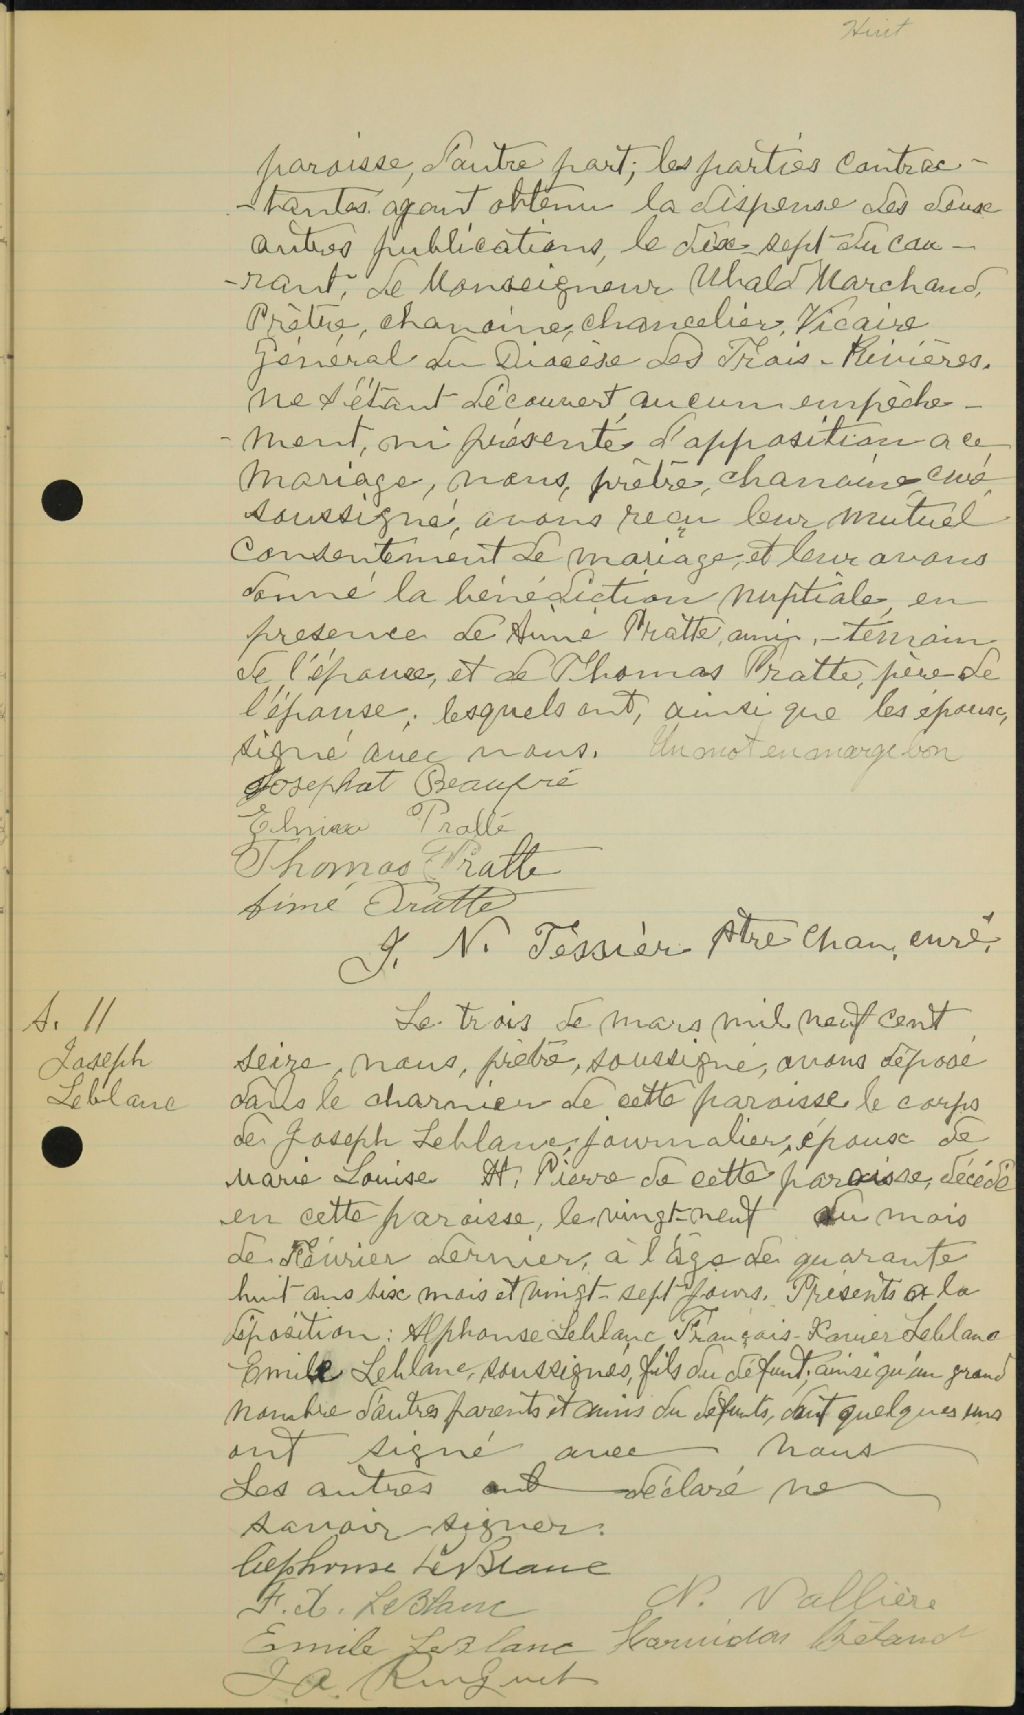 Huit
paroisse, d'autre part; les parties contrac-
-tantes ayant obtenu la dispense des deux
autres publications, le dix-sept du cou-
-rant, de Monseigneur Ubald Marchand,
Prêtre, chanoine, chancelier, Vicaire
Général du Diocèse des Trois-Rivières.
ne s'étant découvert aucun empêche-
-ment, ni présenté d'opposition a ce
mariage, nous, prêtre, chanoine, curé
soussigné, avons reçu leur mutuel
consentement de mariage, et leur avons
donné la bénédiction nuptiale, en
presence de Aimé Pratte, ami, -témoin
de l'époux, et de Thomas Pratte, père de
l'épouse; lesquels ont, ainsi que les époux,
signé avec nous. Un mot en marge bon
Josephat Beaupré
Pratte
Thomas Pratte
Aimé Pratte
J. N. Tessier Ptre Chan. curé.
S. 11
Joseph
Leblanc
Le trois de mars mil neuf cent
seize, nous, prêtre, soussigné, avons déposé
dans le charnier de cette paroisse le corps
de Joseph Leblanc, journalier, époux de
Marie Louise St. Pierre de cette paroisse, décédé
en cette paroisse, le vingt-neuf du mois
de Février dernier, à l'âge de quarante
huit ans six mois et vingt-sept jours. Présents a la
déposition: Alphonse Leblanc François-Xavier Leblanc
Emile Leblanc, soussignés, fils du défunt; ainsi qu'un grand
nombre d'autres parents et amis du défunts, dont quelques uns
ont signé avec nous
Les autres ont déclaré ne
savoir signer.
Alphonse LeBlanc
F. X. LeBlanc N. Vallière
Emile LeBlanc Hormidas Béland
J. A. Ringuet